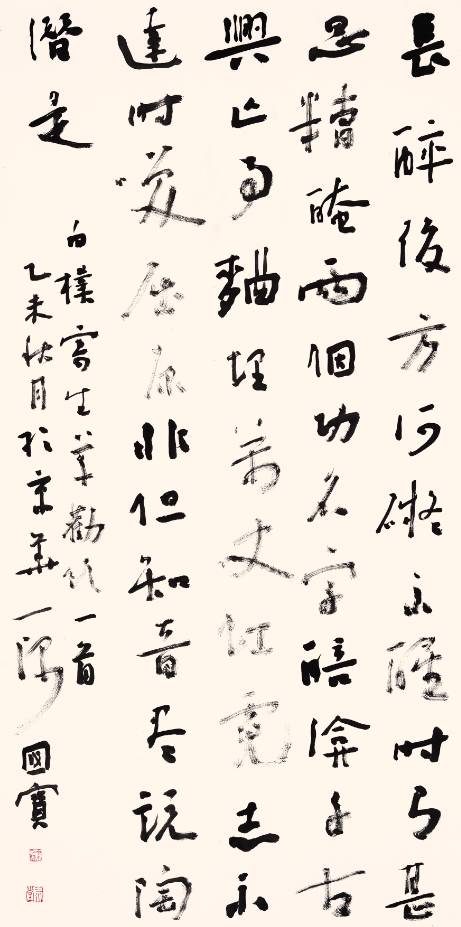 長醉後方何礙不醒時有甚
思糟腌兩個功名字醅渰千古
興亡事麯埋萬丈虹霓志不
達時咲屈原非但知音尽説陶
潛是
白樸寄生草勸飲一首
乙未秋月於京華一隅國寶